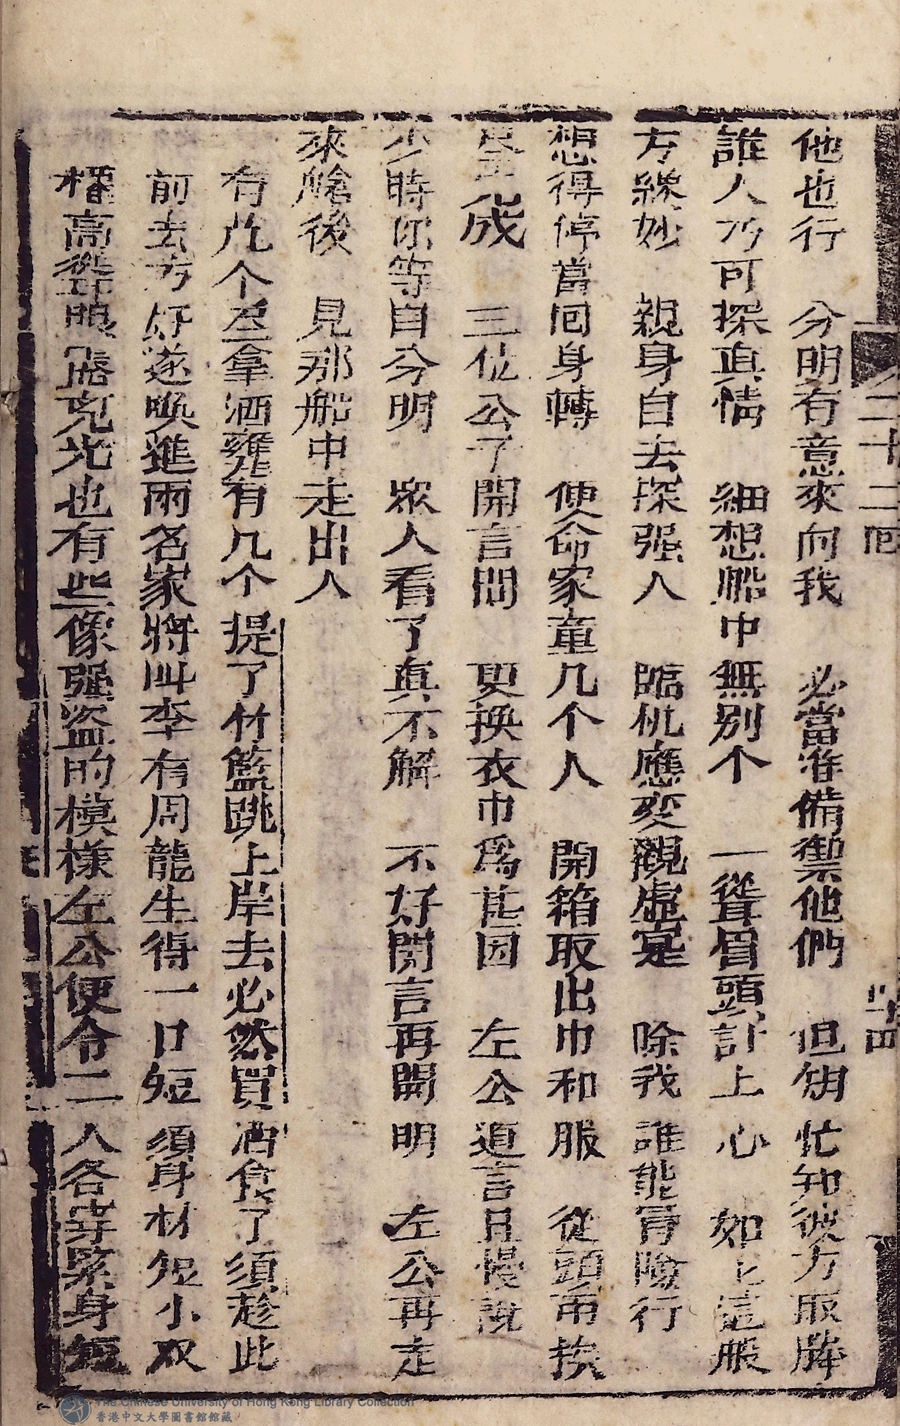 二十二回
他也行　分明有意來向我　必當准備禦他們　但能忙知彼方服
誰人乃可探真情　細想船中無別个　一聳眉頭計上心　如上這服
方纔妙　親身自去探强人　臨机應变觀虛寔　除我誰能冒險行
想得停當囘身轉　便命家童几个人　開箱取出巾和服　從頭而換
尽完成　三位公子開言問　更換衣巾為甚因　左公道言且慢說
少時你等自分明　眾人看了真不解　不好開言再開明　左公再走
來艙後　見那船中走出人
有几个手拿酒甕有几个提了竹籃跳上岸去必然買酒食了須趁此
前去方好遂喚進両名家將叫李有周龍生得一口短須身材短小双
權高聳眼露克光也有些像强盗的模樣左公便令二人各穿緊身短
The Chinese University of Hong Kong Library Collection
香港中文大學圖書館館藏